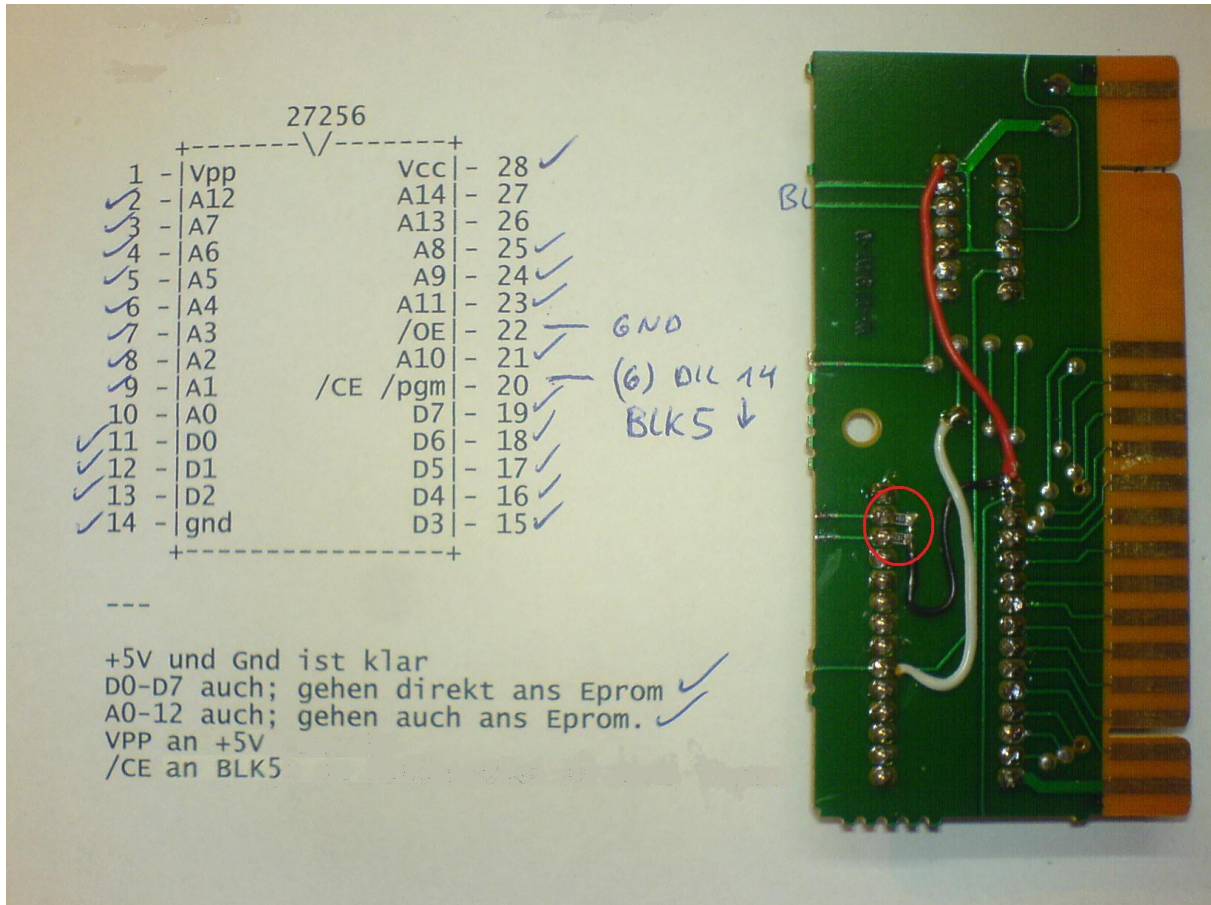 27256
+-------\/-------+
1 -|Vpp Vcc|- 28 ✓
✓2 -|A12 A14|- 27
✓3 -|A7 A13|- 26
✓4 -|A6 A8|- 25 ✓
✓5 -|A5 A9|- 24 ✓
✓6 -|A4 A11|- 23 ✓
✓7 -|A3 /OE|- 22 — GND
✓8 -|A2 A10|- 21 ✓
✓9 -|A1 /CE /pgm|- 20 — (6) DIL 14
10 -|A0 D7|- 19 ✓ BLK5 ↓
✓11 -|D0 D6|- 18 ✓
✓12 -|D1 D5|- 17 ✓
✓13 -|D2 D4|- 16 ✓
✓14 -|gnd D3|- 15 ✓
+----------------+
---
+5V und Gnd ist klar
D0-D7 auch; gehen direkt ans Eprom ✓
A0-12 auch; gehen auch ans Eprom. ✓
VPP an +5V
/CE an BLK5
BL